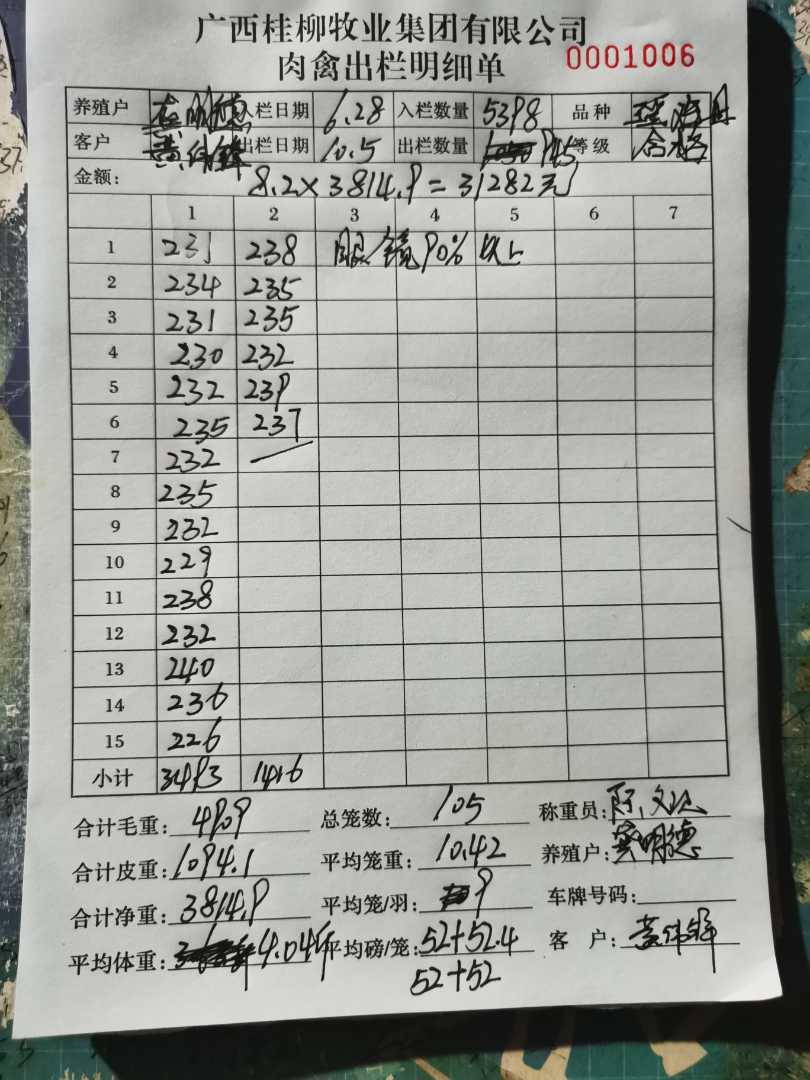 广西桂柳牧业集团有限公司
肉禽出栏明细单 0001006
养殖户 明德 入栏日期 6.28 入栏数量 5398 品种
客户 黄伟锋 出栏日期 10.5 出栏数量 945 等级 合格
金额: 8.2×3814.9=31282元
1 2 3 4 5 6 7
1 231 238 眼镜90%以上
2 234 235
3 231 235
4 230 232
5 232 239
6 235 237
7 232
8 235
9 232
10 229
11 238
12 232
13 240
14 236
15 226
小计 3493 1416
合计毛重: 4909 总笼数: 105 称重员:
合计皮重: 1094.1 平均笼重: 10.42 养殖户: 明德
合计净重: 3814.9 平均笼/羽: 9 车牌号码:
平均体重: 4.04斤 平均磅/笼: 52+52.4 客户: 黄伟锋
52+52